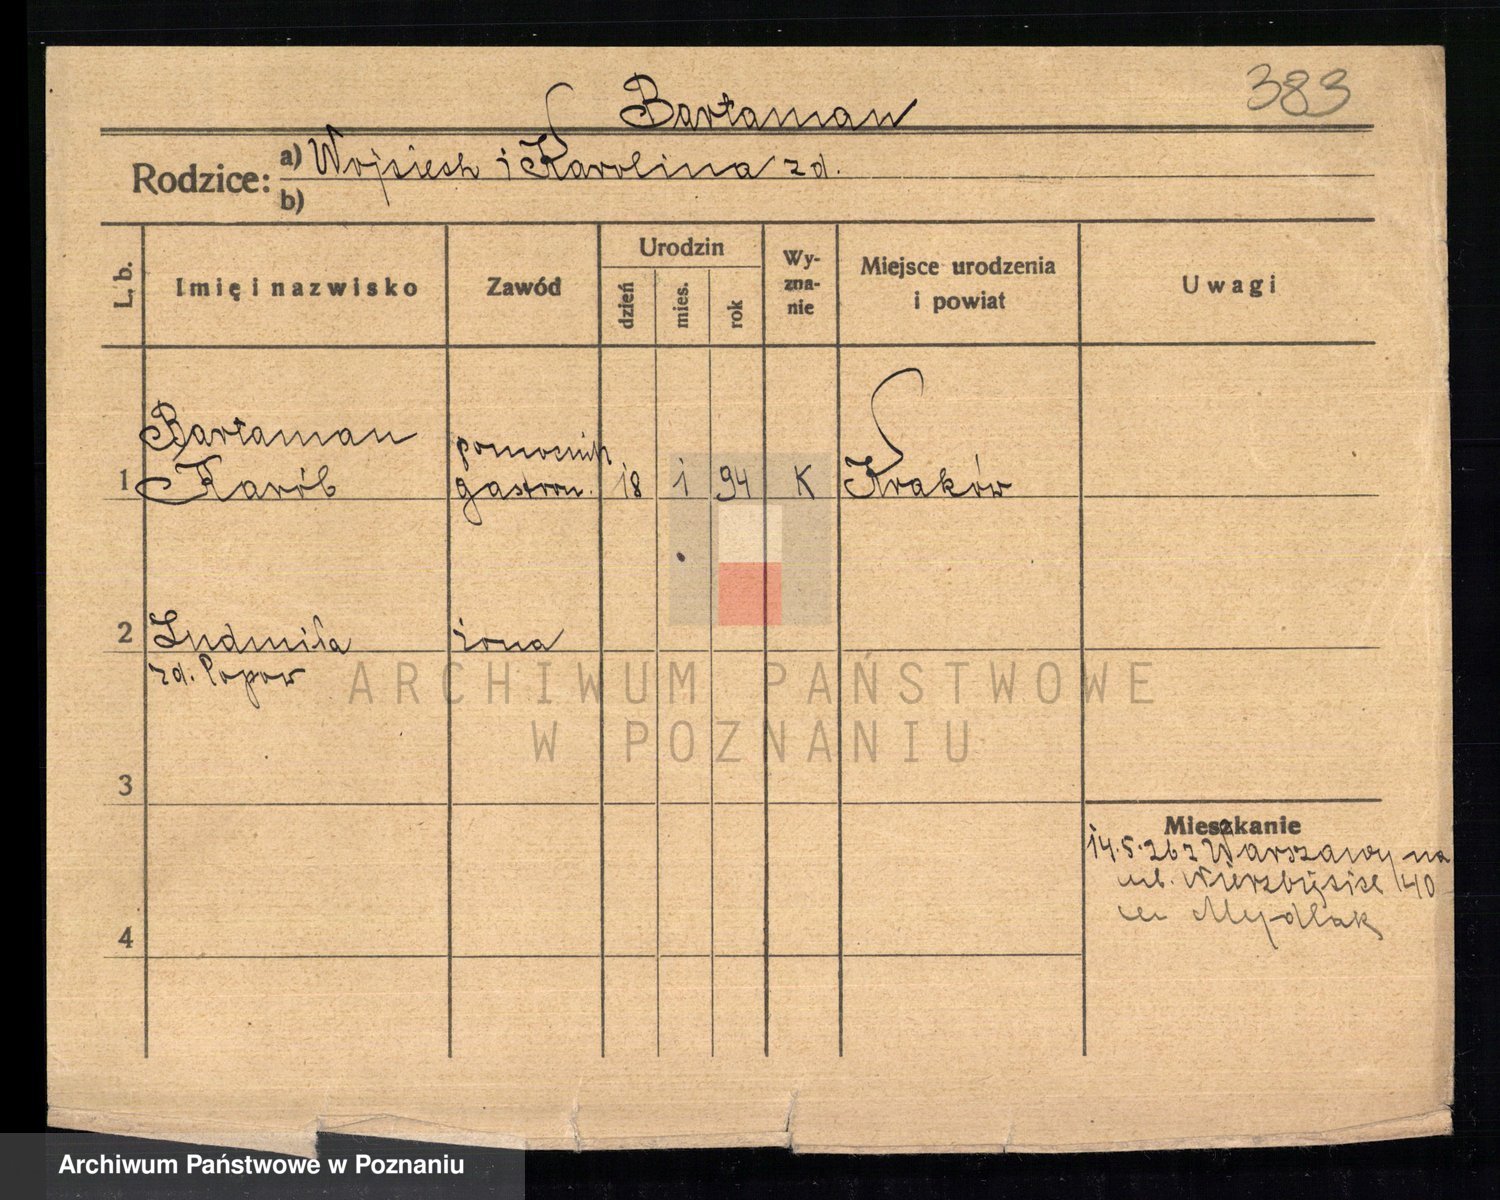 383
Bartaman
Rodzice: a) Wojciech i Karolina zd.
b)
L. b. Imię i nazwisko Zawód Urodzin dzień mies. rok Wyznanie Miejsce urodzenia i powiat Uwagi
Bartaman pomocnik
1 Karól gastron. 18 1 94 K Kraków
2 Ludmiła żona
zd. Popow
3
Mieszkanie
14.5.26 z Warszawy na
ul. Wierzbięcice 40
u Mydlak
4
ARCHIWUM PAŃSTWOWE
W POZNANIU
Archiwum Państwowe w Poznaniu